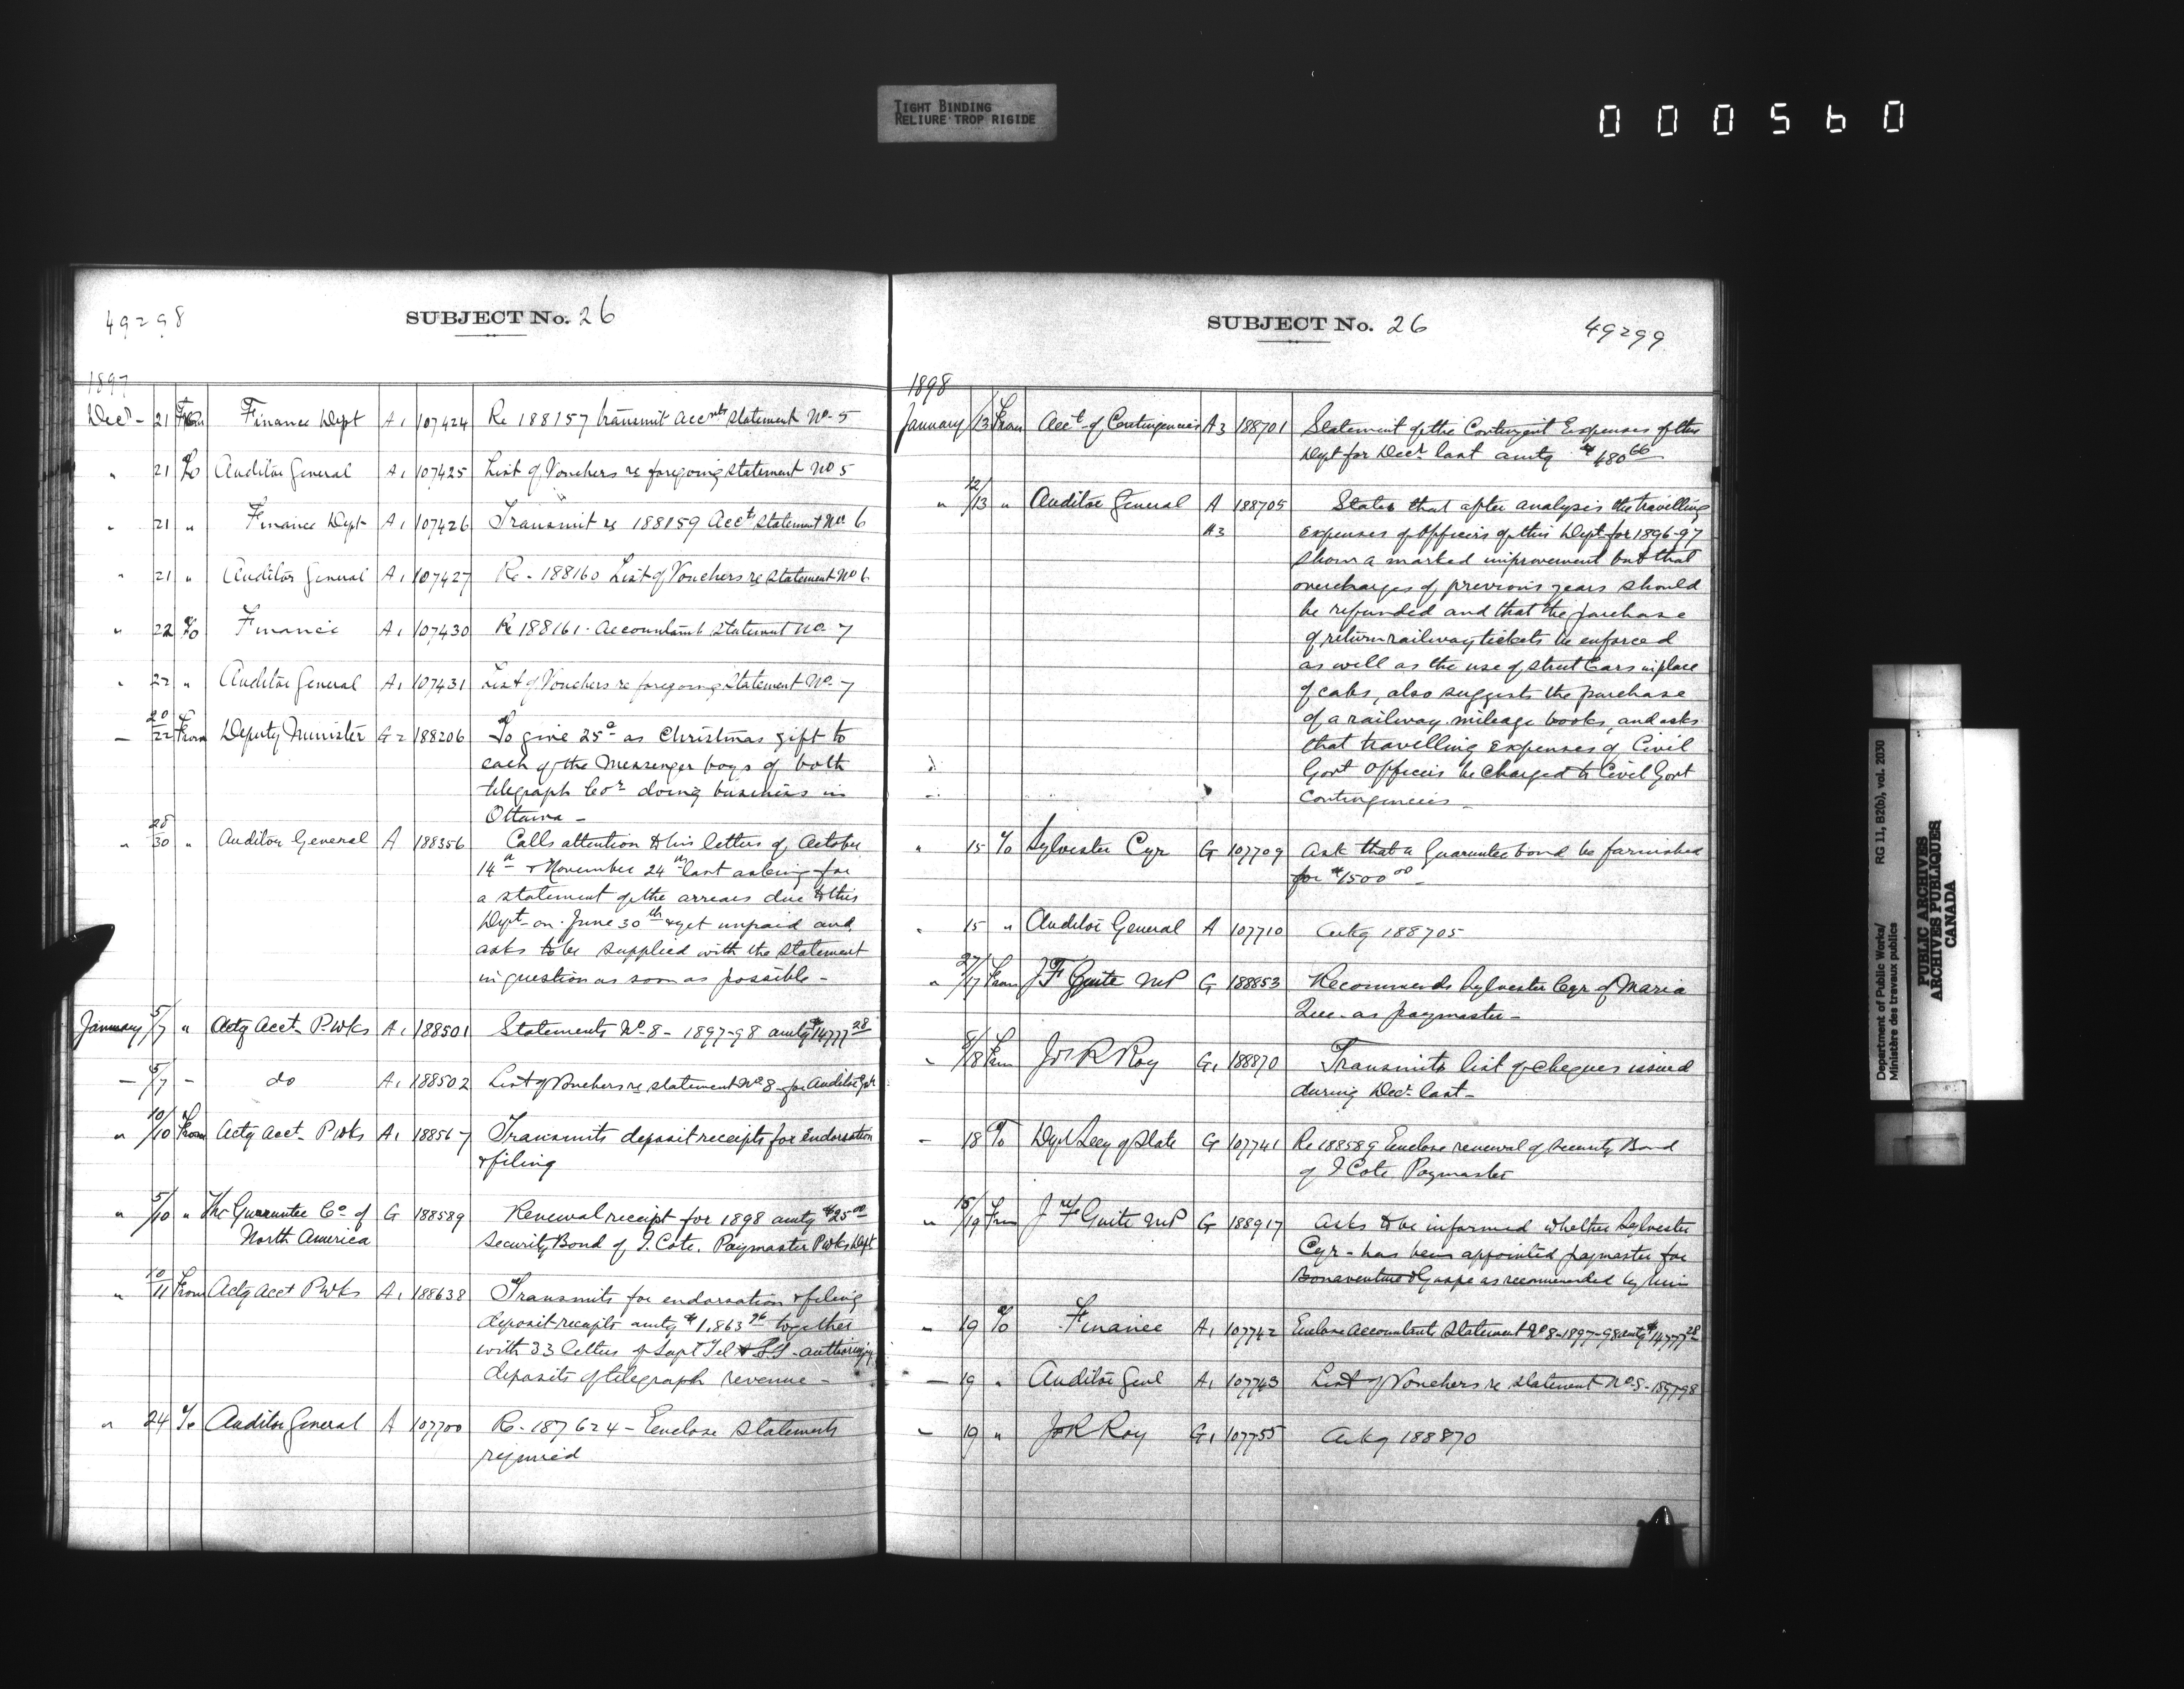 TIGHT BINDING
RELIURE TROP RIGIDE
000560
49298
SUBJECT No. 26
1897
Decr - 21 From Finance Dept A1 107424 Re 188157 transmit Accnts Statement No- 5
" 21 To Auditor General A1 107425 List of Vouchers re foregoing statement No 5
" 21 " Finance Dept A1 107426 Transmit re 188159 Acct Statement No 6
" 21 " Auditor General A1 107427 Re - 188160 List of Vouchers re Statement No 6
" 22 To Finance A1 107430 Re 188161 - Accountants Statement No- 7
" 22 " Auditor General A1 107431 List of Vouchers re foregoing Statement No- 7
— 20/22 From Deputy Minister G2 188206 To give 25c as Christmas gift to
each of the Messenger boys of both
telegraph Cos doing business in
Ottawa -
" 28/30 " Auditor General A 188356 Calls attention to his letters of October
14th & November 24th last asking for
a statement of the arrears due to this
Dept - on June 30th & yet unpaid and
asks to be supplied with the statement
in question as soon as possible -
January 5/7 " Actg Acct - P Wks A1 188501 Statements No- 8 - 1897-98 amtg $14777 28
— 5/7 - do A1 188502 List of Vouchers re statement No 8 - for Auditor Genl
" 10/10 From Actg Acct - P Wks A1 188567 Transmits deposit receipts for endorsation
& filing
" 5/10 " The Guarantee Co of G 188589 Renewal receipt for 1898 amtg $25 00
North America Security Bond of J. Cote, Paymaster P Wks Dept
" 10/11 From Actg Acct P Wks A1 188638 Transmits for endorsation & filing
deposit receipts amtg $1,863 together
with 33 letters of Supt Tel & SS - authorizing
deposits of telegraph revenue -
" 24 To Auditor General A 107700 Re - 187624 - Enclose Statements
required
SUBJECT No. 26
49299
1898
January /13 From Acct of Contingencies A3 188701 Statement of the Contingent Expenses of this
Dept for Decr last amtg $480 66
" 12/13 " Auditor General A 188705 States that after analysis the travelling
A3 expenses of Officers of this Dept for 1896-97
show a marked improvement but that
overcharges of previous years should
be refunded and that the purchase
of return railway tickets be enforced
as well as the use of street Cars in place
of cabs, also suggests the purchase
of a railway mileage books, and asks
that travelling expenses of Civil
Govt Officers be charged to Civil Govt
Contingencies -
" 15 To Sylvester Cyr G 107709 Ask that a Guarantee bond be furnished
for $1500 00 -
" 15 " Auditor General A 107710 Ackg 188705
" 27/17 From J F Guite MP G 188853 Recommends Sylvester Cyr of Maria
Que. as paymaster -
" 8/18 From Jos R Roy G1 188870 Transmits list of cheques issued
during Dec. last -
- 18 To Dept Secy of State G 107741 Re 188589 Enclose renewal of Security Bond
of J Cote, Paymaster
" 18/19 From J F Guite MP G 188917 Asks to be informed whether Sylvester
Cyr - has been appointed paymaster for
Bonaventure & Gaspe as recommended by him
" 19 To Finance A1 107742 Enclose Accountants Statement No 8 - 1897-98 amtg $14777 28
— 19 " Auditor Genl A1 107743 List of Vouchers re Statement No 8 - 1897-98
" 19 " Jos R Roy G1 107755 Ackg 188870
Department of Public Works/
Ministère des travaux publics
RG 11, B2(b), vol. 2030
PUBLIC ARCHIVES
ARCHIVES PUBLIQUES
CANADA